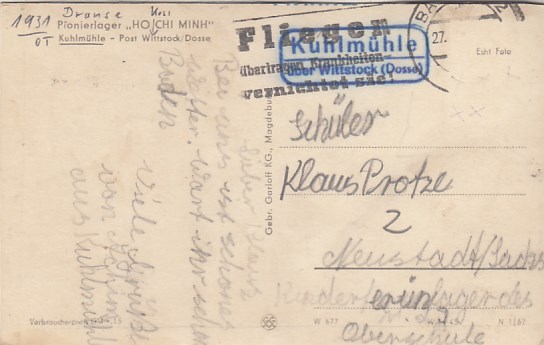 1931
OT
Dranse Kgsl
Pionierlager „HO CHI MINH"
Kuhlmühle – Post Wittstock/Dosse
Fliegen
übertragen Krankheiten-
vernichtet sie!
Kuhlmühle
über Wittstock (Dosse)
BA
27.
Echt Foto
Lieber Klaus
Bei uns ist schönes
Wetter. Wart ihr schon
Baden
Viele Grüße
von
aus Kuhlmühle
Gebr. Garloff KG., Magdeburg
Schüler
Klaus Protze
2
Neustadt/Sachs
Kinderferienlager des
Oberschule
Verbraucherpreis
W 677
N 1/62